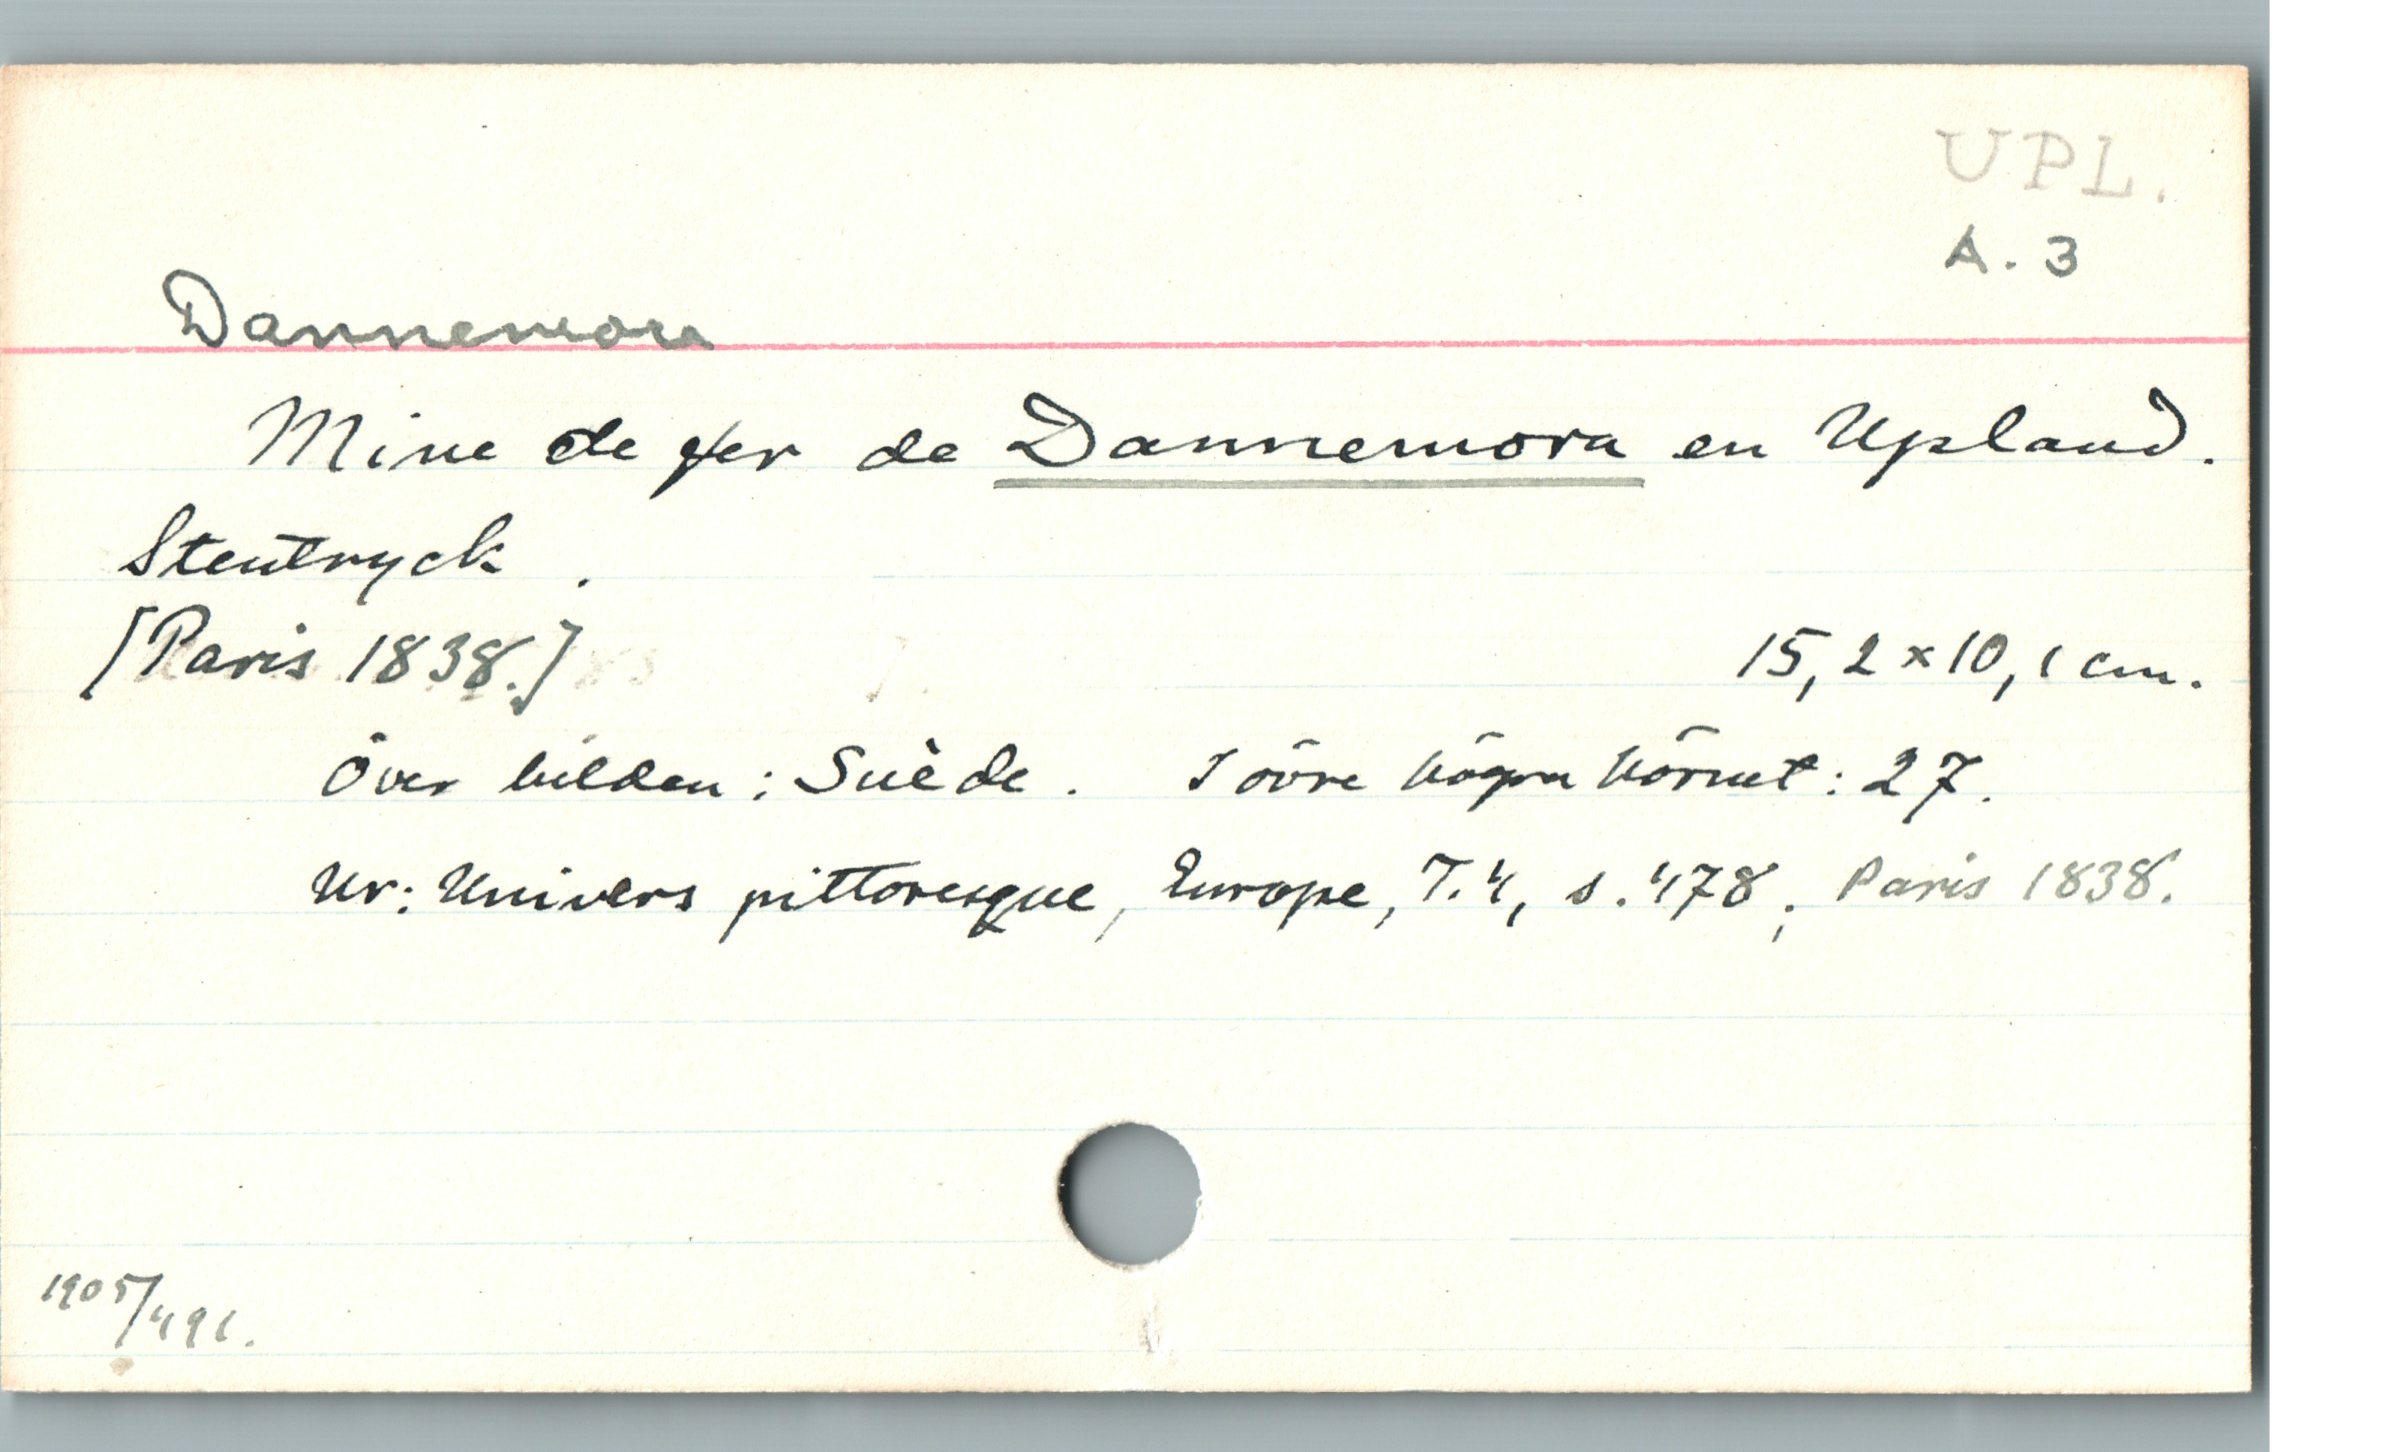 UPL.
A. 3
Dannemora
Mine de fer de Dannemora en Upland.
Stentryck.
[Paris 1838.] 15,2 × 10,1 cm.
Över bilden: Suède. I övre högra hörnet: 27.
Ur: Univers pittoresque, Europe, T.4, s. 478; Paris 1838.
1905/491.